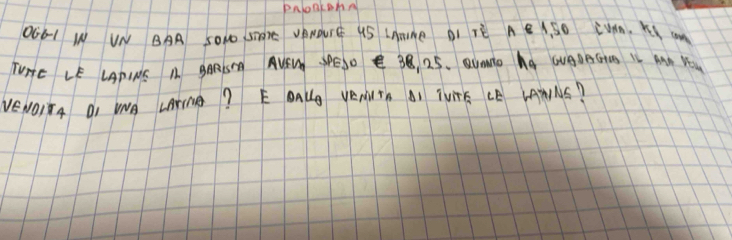 PROBLEMA
OGGI IN UN BAR SONO STATE VENDUTE 45 LATTINE DI TÈ A € 1,50 L'UNA. PER
TUTTE LE LATTINE IL BARISTA AVEVA SPESO € 38,25. QUANTO HA GUADAGNATO IL BAR
VENDITA DI UNA LATTINA? E DALLA VENDITA DI TUTTE LE LATTINE?